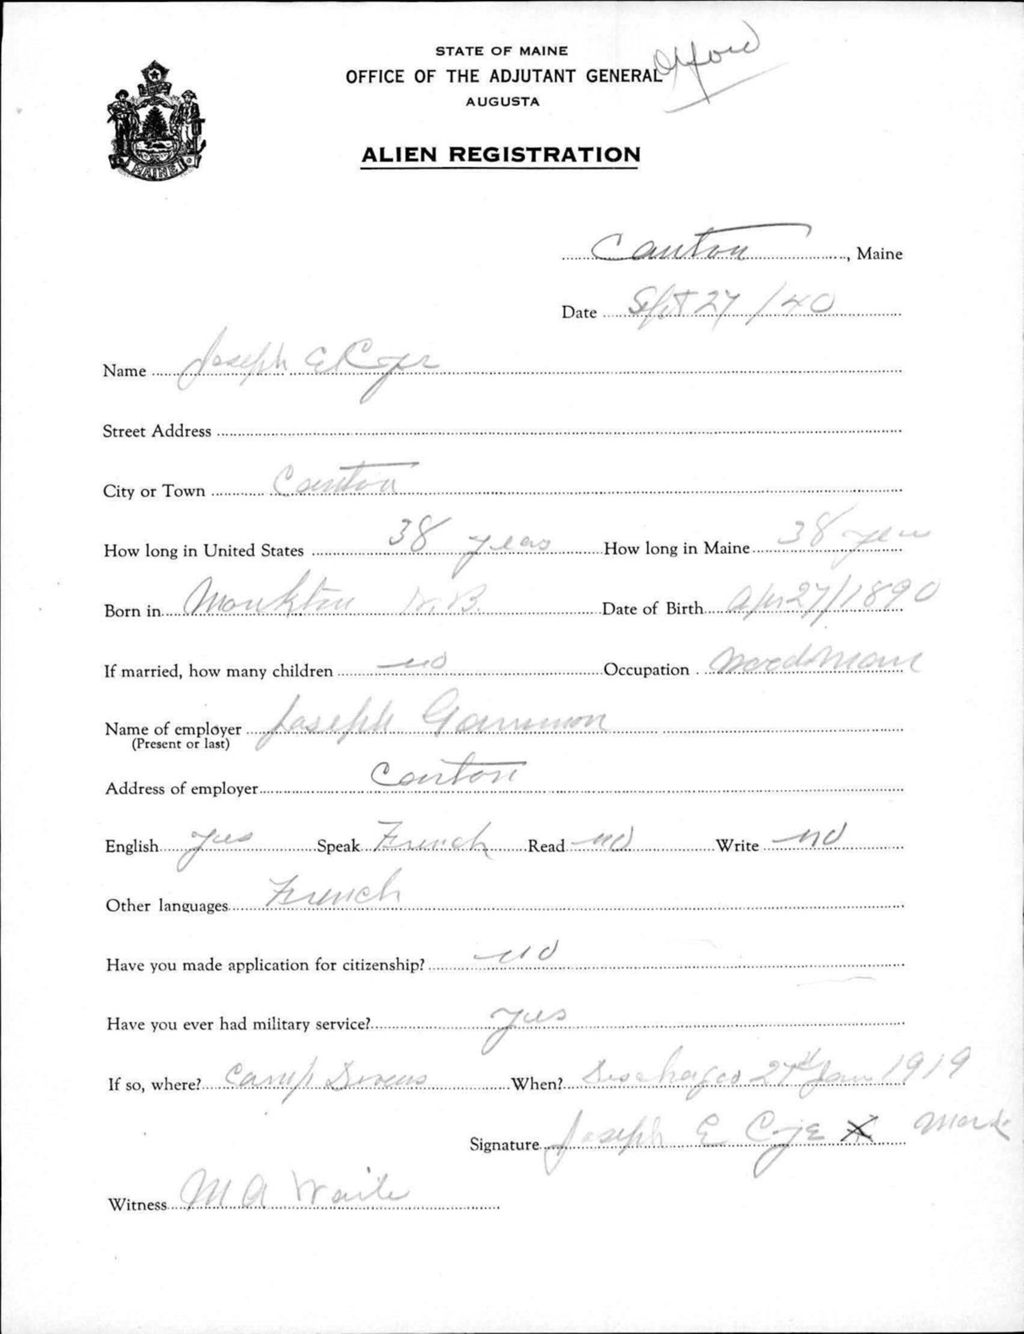 STATE OF MAINE
OFFICE OF THE ADJUTANT GENERAL
AUGUSTA
Oxford
ALIEN REGISTRATION
MAINE
Canton, Maine
Date Sept 27/40
Name Joseph E
Street Address
City or Town Canton
How long in United States 38 years How long in Maine 38 years
Born in Monkton N.B. Date of Birth Apr 27/1890
If married, how many children no Occupation Woodsman
Name of employer Joseph Gammon
(Present or last)
Address of employer Canton
English yes Speak French Read no Write no
Other languages French
Have you made application for citizenship? no
Have you ever had military service? yes
If so, where? Camp Devens When? Jan 1919
Signature Joseph E Cyr X Mark
Witness M A Waite